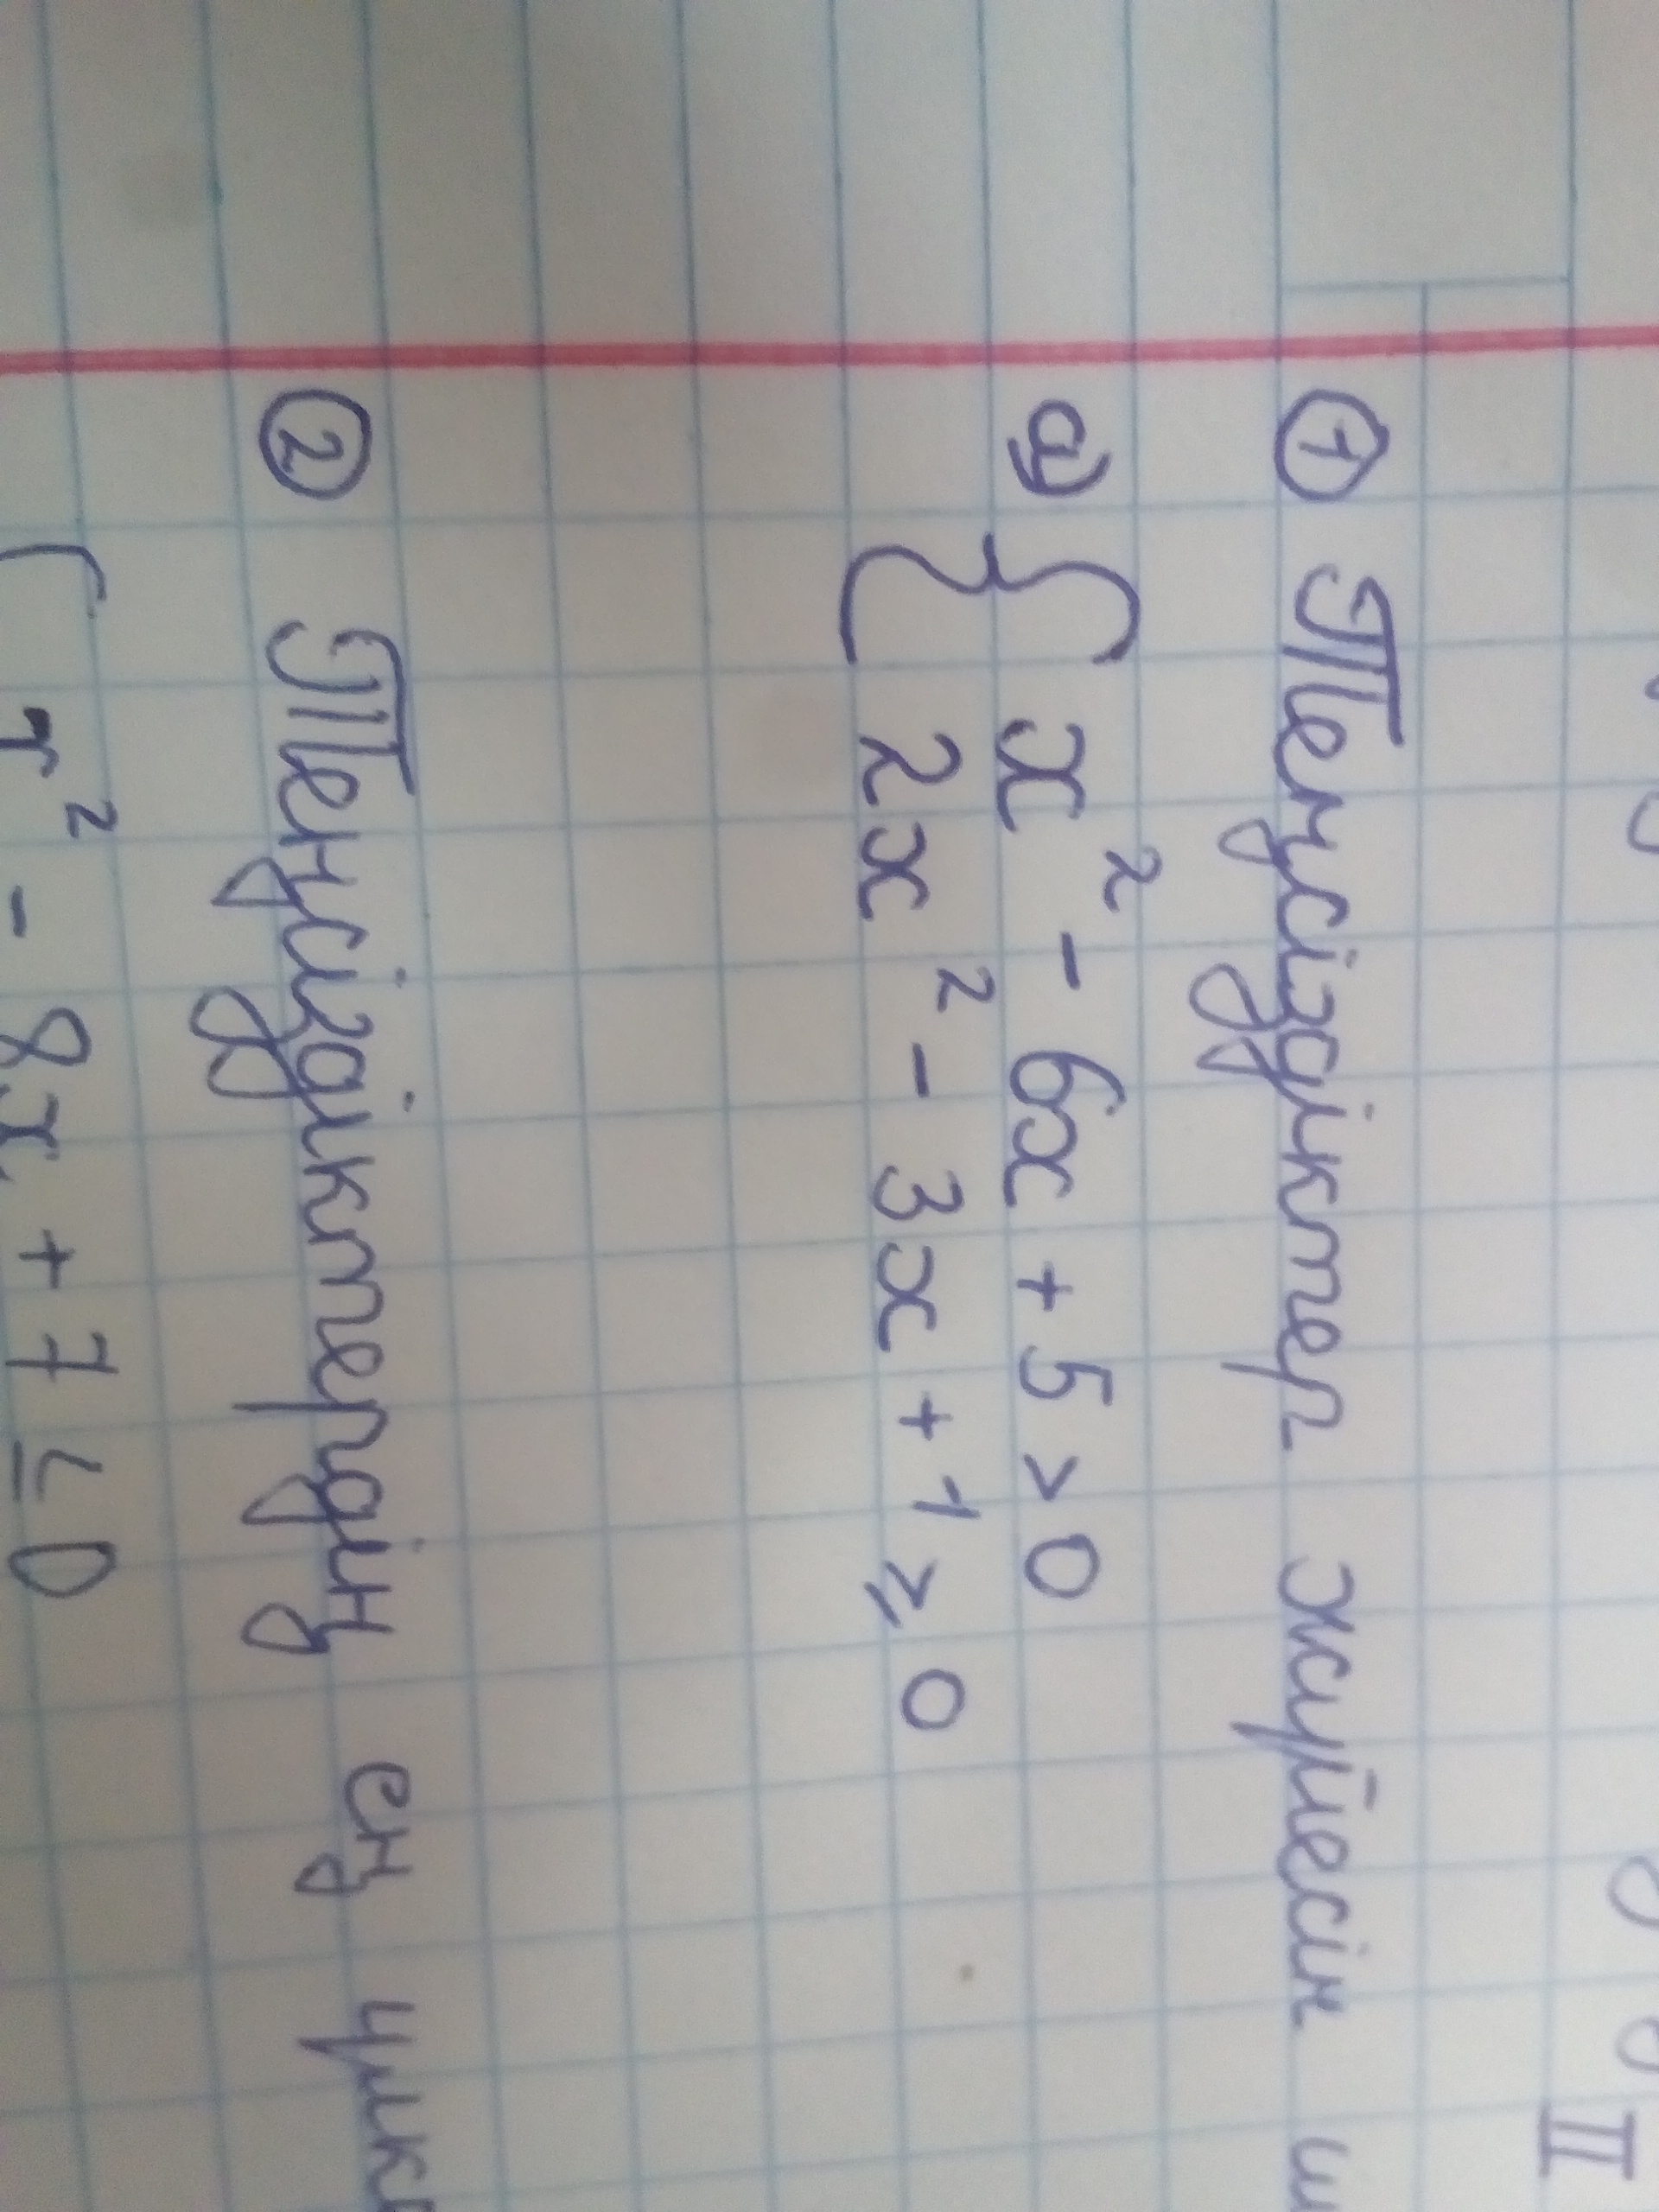 II
① Теңсіздіктер жүйесін
а) { x² - 6x + 5 > 0
2x² - 3x + 1 ≥ 0
② Теңсіздіктердің ең
x² - 8x + 7 ≤ 0